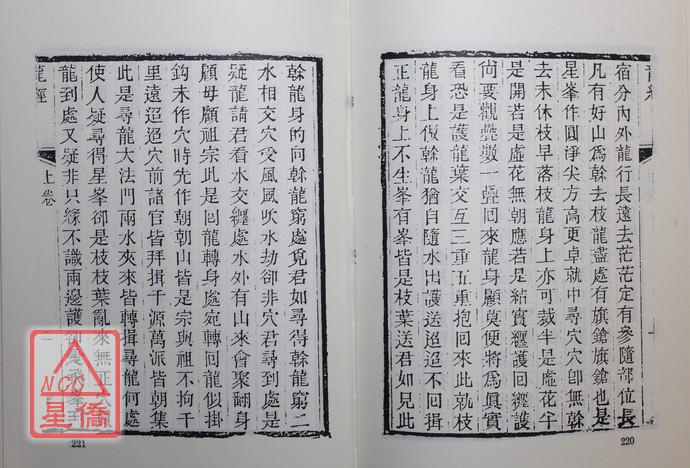 宿分內外龍行長遠去茫茫定有參隨部位長
凡有好山為幹去枝龍盡處有旗鎗旗鎗也是
星峯作圓淨尖方高更卓就中尋穴穴卽無幹
去未休枝早落枝龍身上亦可裁半是虛花半
是開若是虛花無朝應若是結實纏護回來
尙要觀疊數一疊回來龍身顧莫便將為真實
看恐是護龍葉交互三重五重抱回來此就枝
龍身上做幹龍猶自隨水出護送迢迢不回屈
正龍身上不生峯有峯皆是枝葉送君如見此
220
幹龍身的向幹龍窮處覓君如尋得幹龍窮二
水相交穴受風風吹水劫卻非穴君尋到處是
疑龍請君看水交纏處水外有山來會聚翻身
顧母顧祖宗此是回龍轉身處宛轉回龍似掛
鈎未作穴時先作朝朝山皆是宗與祖不拘千
里遠迢迢穴前諸官皆拜揖千源萬派皆朝集
此是尋龍大法門兩水夾來皆轉揖尋龍何處
使人疑尋得星峯卻是枝枝葉亂來無正穴真
龍到處又疑非只緣不識兩邊護卻愛飛峯到
龍經
上卷
221
NCC
星僑